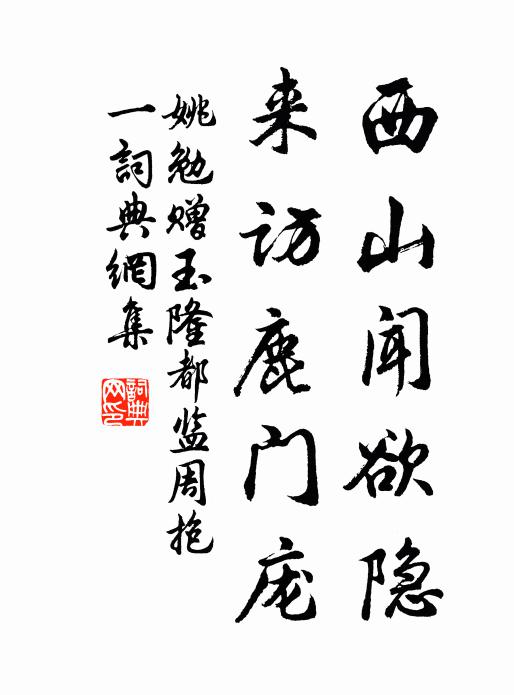 西山闻欲隐
来访鹿门庞
姚勉赠玉隆都监周抱
一詞典網集
詞典网印